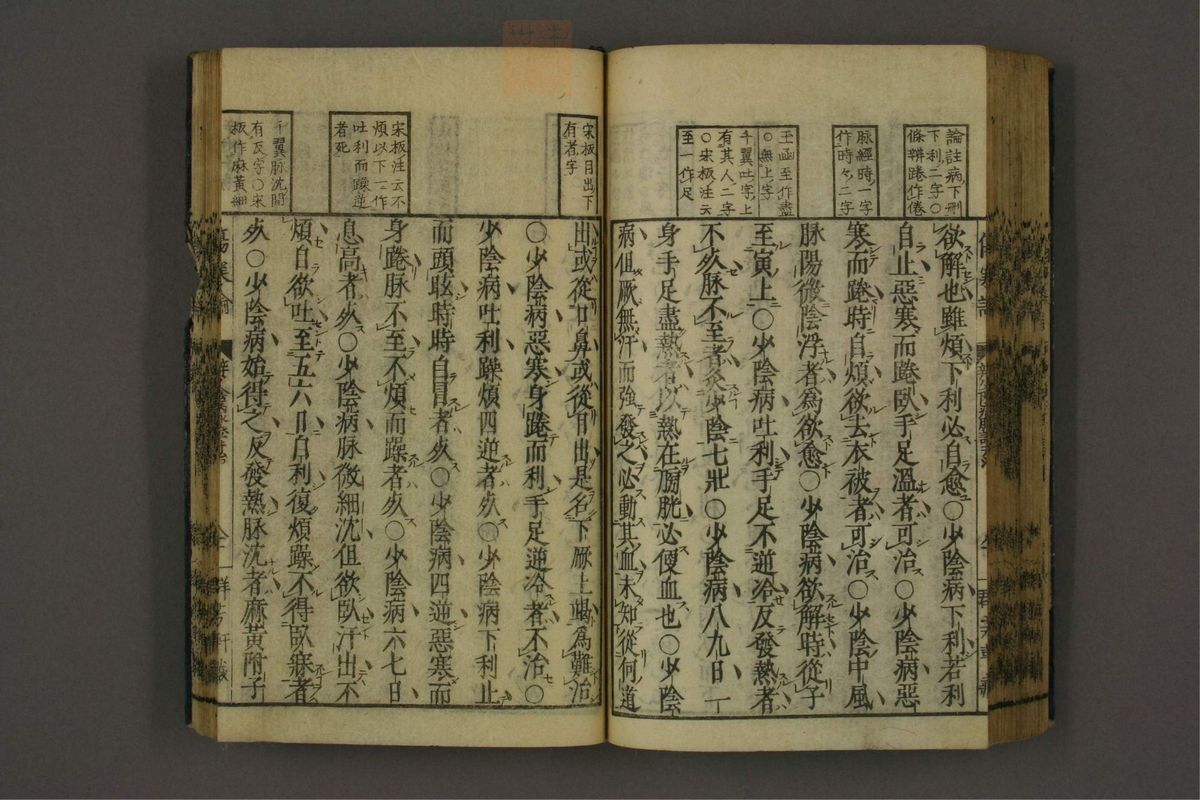 論註病下刪
下利二字○
條辨踡作倦
脉經時一字
作時々二字
玉函至作盡
○無上字
千翼吐字上
有其人二字
○宋板注云
至一作足
欲解也雖煩下利必自愈○少陰病下利若利
自止惡寒而踡臥手足溫者可治○少陰病惡
寒而踡時自煩欲去衣被者可治○少陰中風
脉陽微陰浮者爲欲愈○少陰病欲解時從子
至寅上○少陰病吐利手足不逆冷反發熱者
不死脉不至者灸少陰七壯○少陰病八九日一
身手足盡熱者以熱在膀胱必便血也○少陰
病但厥無汗而強發之必動其血未知從何道
宋板目出下
有者字
宋板注云不
煩以下一作
吐利而躁逆
者死
千翼脉沈間
有反字○宋
板作麻黃細
出或從口鼻或從目出是名下厥上竭爲難治
○少陰病惡寒身踡而利手足逆冷者不治○
少陰病吐利躁煩四逆者死○少陰病下利止
而頭眩時時自冒者死○少陰病四逆惡寒而
身踡脉不至不煩而躁者死○少陰病六七日
息高者死○少陰病脉微細沈但欲臥汗出不
煩自欲吐至五六日自利復煩躁不得臥寐者
死○少陰病始得之反發熱脉沈者麻黃附子